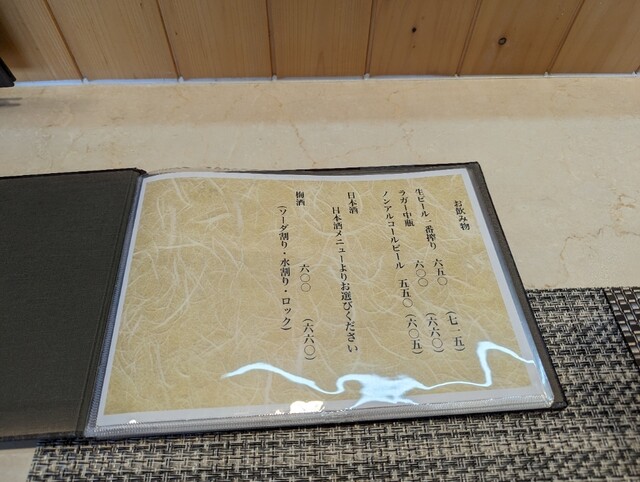 お飲み物
生ビール一番搾り 六五〇 (七一五)
ラガー中瓶 六〇〇 (六六〇)
ノンアルコールビール 五五〇 (六〇五)
日本酒
日本酒メニューよりお選びください
梅酒 六〇〇 (六六〇)
(ソーダ割り・水割り・ロック)